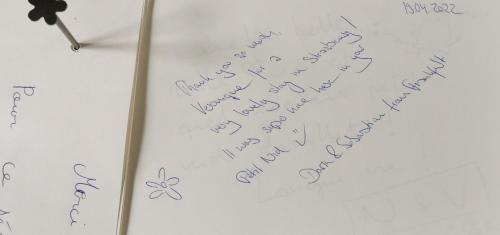 13.04.2022
Thank you so much,
for a
very lovely stay in Strasbourg!
It was super nice here in your
Petit Nid :)
& Sebastian from Frankfurt
Pour
Merci
Ce